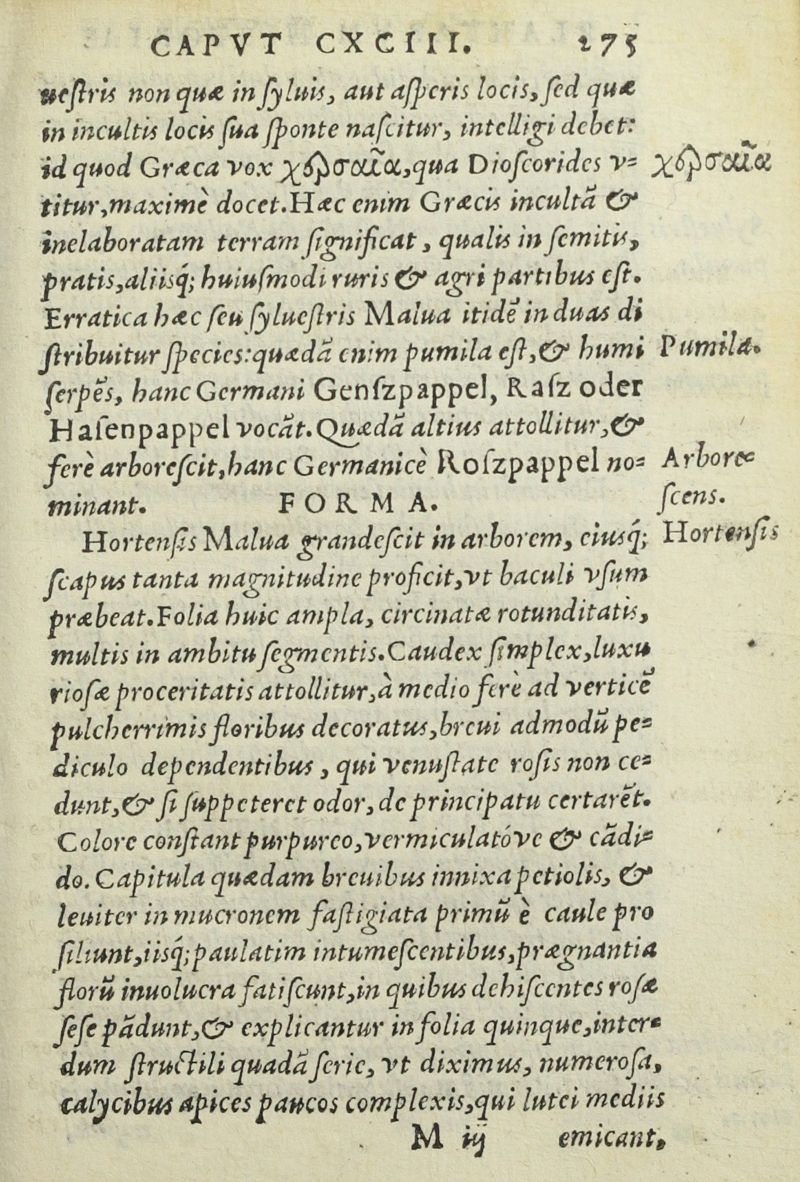 CAPVT CXCIII. 275
uestris non quæ in syluis, aut asperis locis, sed quæ
in incultis locis sua sponte nascitur, intelligi debet:
id quod Græca vox χερσαῖα, qua Dioscorides v= χερσαῖα
titur, maximè docet. Hæc enim Græcis incultã &
inelaboratam terram significat, qualis in semitis,
pratis, aliisq; huiusmodi ruris & agri partibus est.
Erratica hæc seu syluestris Malua itidē in duas di
stribuitur species: quædã enim pumila est, & humi Pumila.
serpēs, hanc Germani Genſzpappel, Raſz oder
Haſenpappel vocãt. Quædã altius attollitur, &
ferè arborescit, hanc Germanicè Roſzpappel no= Arbore
minant. FORMA. scens.
Hortensis Malua grandescit in arborem, eiusq; Hortensis
scapus tanta magnitudine proficit, vt baculi vsum
præbeat. Folia huic ampla, circinatæ rotunditatis,
multis in ambitu segmentis. Caudex simplex, luxu
riosæ proceritatis attollitur, à medio ferè ad verticē
pulcherrimis floribus decoratus, breui admodũ pe=
diculo dependentibus, qui venustate rosis non ce=
dunt, & si suppeteret odor, de principatu certarēt.
Colore constant purpureo, vermiculatóve & cãdi=
do. Capitula quædam breuibus innixa petiolis, &
leuiter in mucronem fastigiata primũ è caule pro
siliunt, iisq; paulatim intumescentibus, prægnantia
florũ inuolucra fatiscunt, in quibus dehiscentes rosæ
sese pãdunt, & explicantur in folia quinque, inter=
dum structili quadã serie, vt diximus, numerosa,
calycibus apices paucos complexis, qui lutei mediis
M iij emicant,